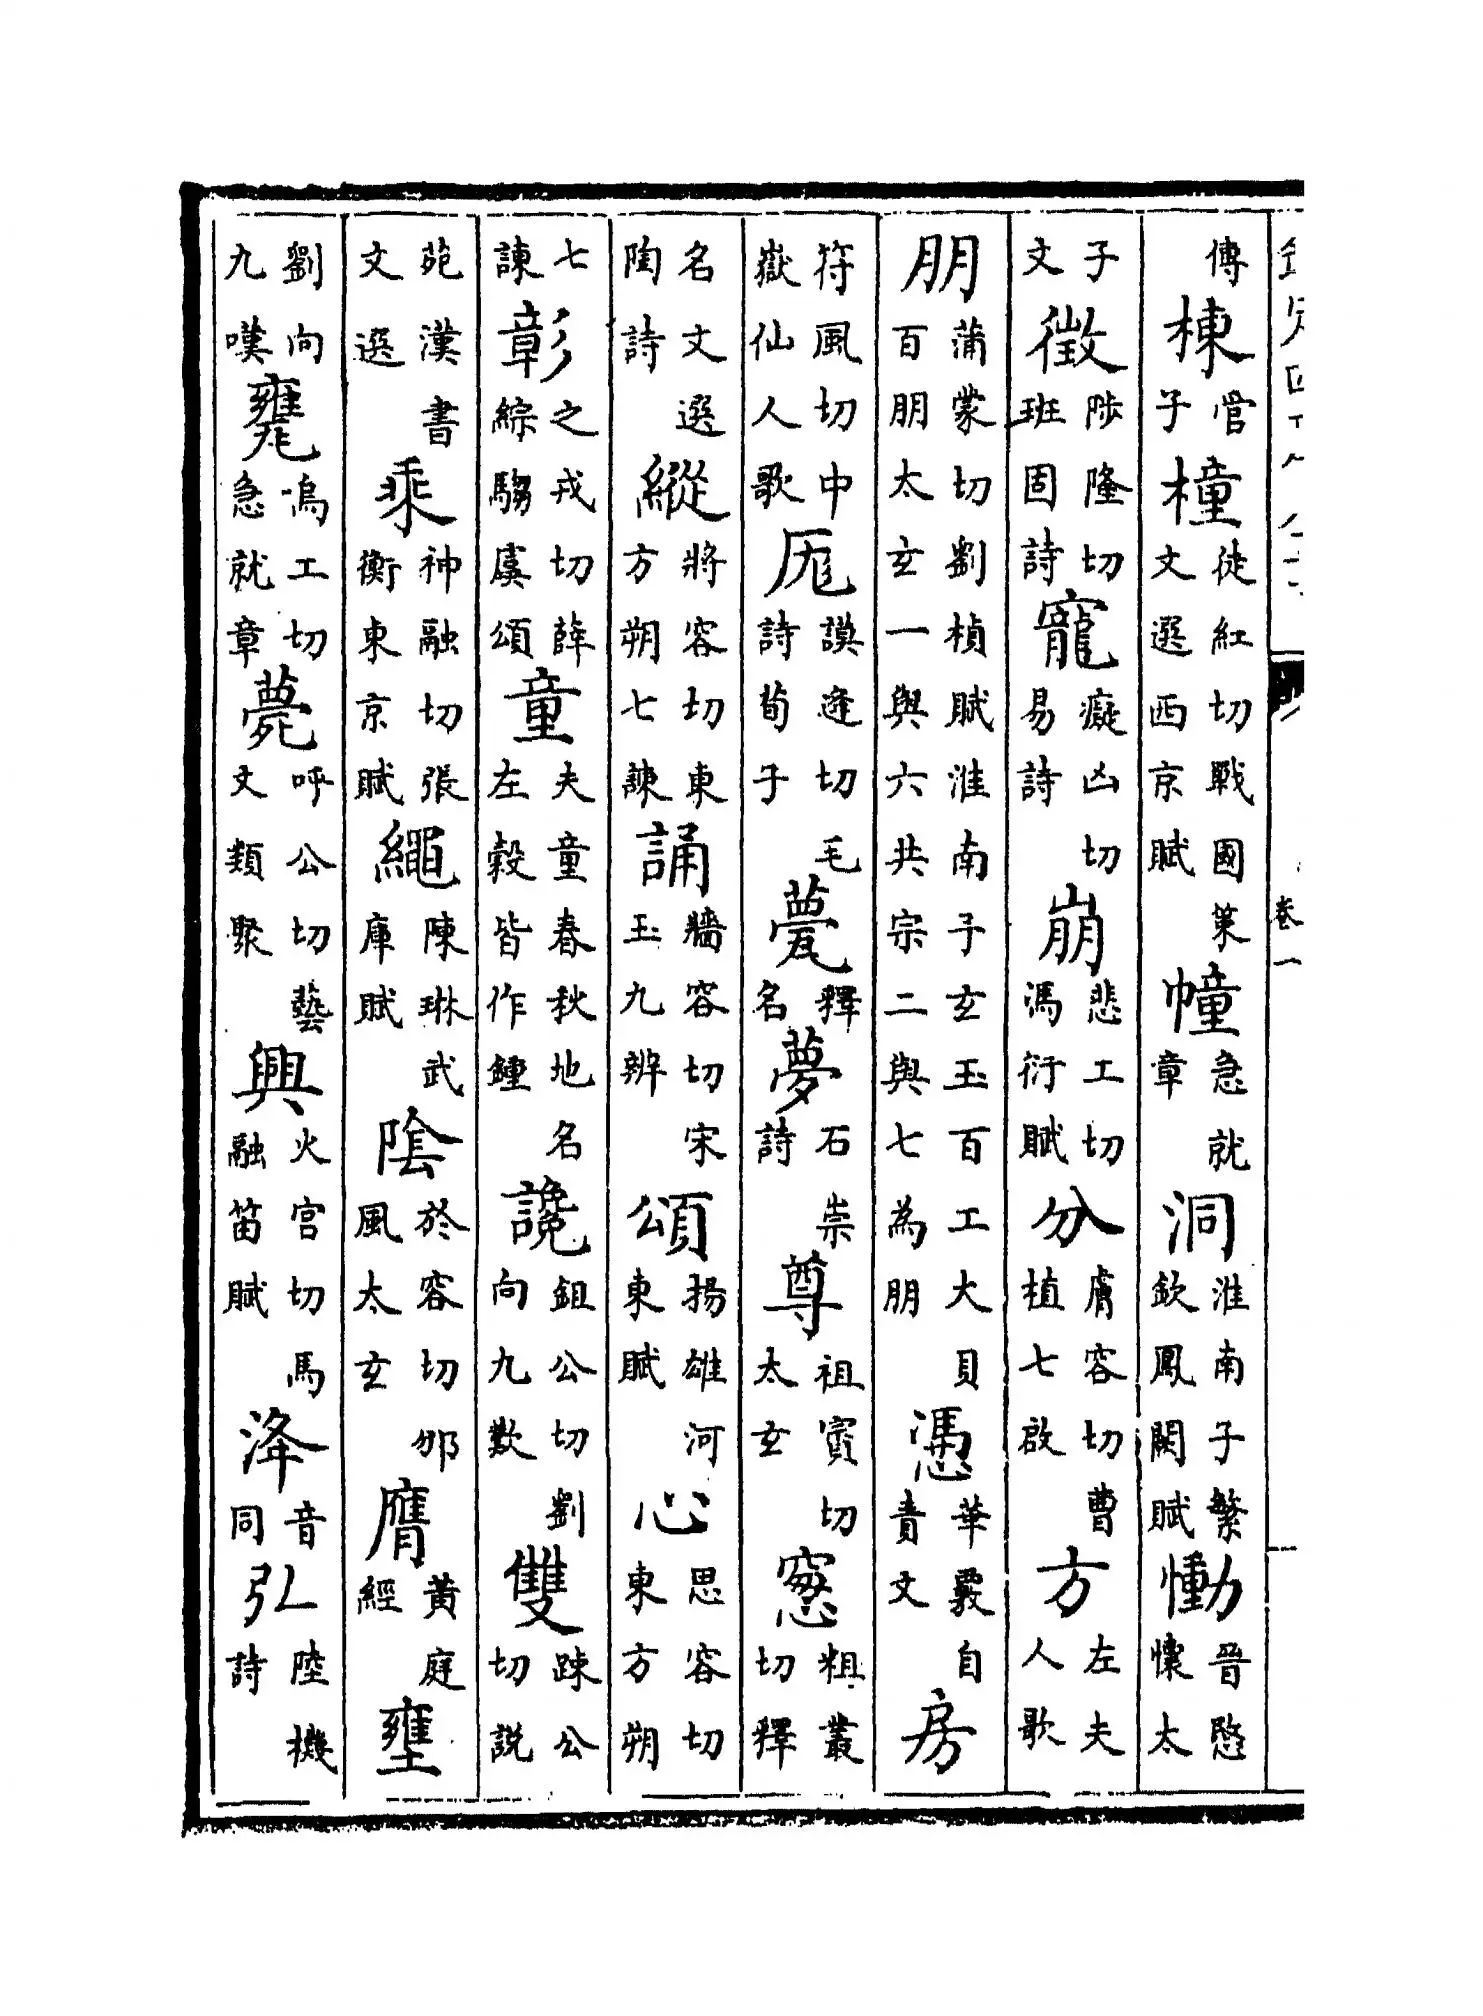 卷一
傳棟管子橦徒紅切戰國策文選西京賦幢急就章洞淮南子繁欽鳳闕賦慟晉愍懷太
子文徵陟隆切班固詩寵癡凶切易詩崩悲工切馮衍賦分膚容切曹植七啟方左夫人歌
朋蒲蒙切劉楨賦淮南子玄玉百工大貝百朋太玄一與六共宗二與七為朋憑華覈自責文房
符風切中嶽仙人歌厖謨逢切毛詩荀子甍釋名夢石崇詩尊祖賨切太玄窻粗叢切釋
名文選陶詩縱將容切東方朔七諫誦牆容切宋玉九辨頌揚雄河東賦心思容切東方朔
七諫彰之戎切薛綜騶虞頌童夫童春秋地名左穀皆作鍾讒鉏公切劉向九歎雙踈公切説
苑漢書文選乘神融切張衡東京賦繩陳琳武庫賦陰於容切邠風太玄膺黃庭經壅
劉向九嘆嗚工切急就章薨呼公切藝文類聚興火宮切馬融笛賦洚音同弘陸機詩